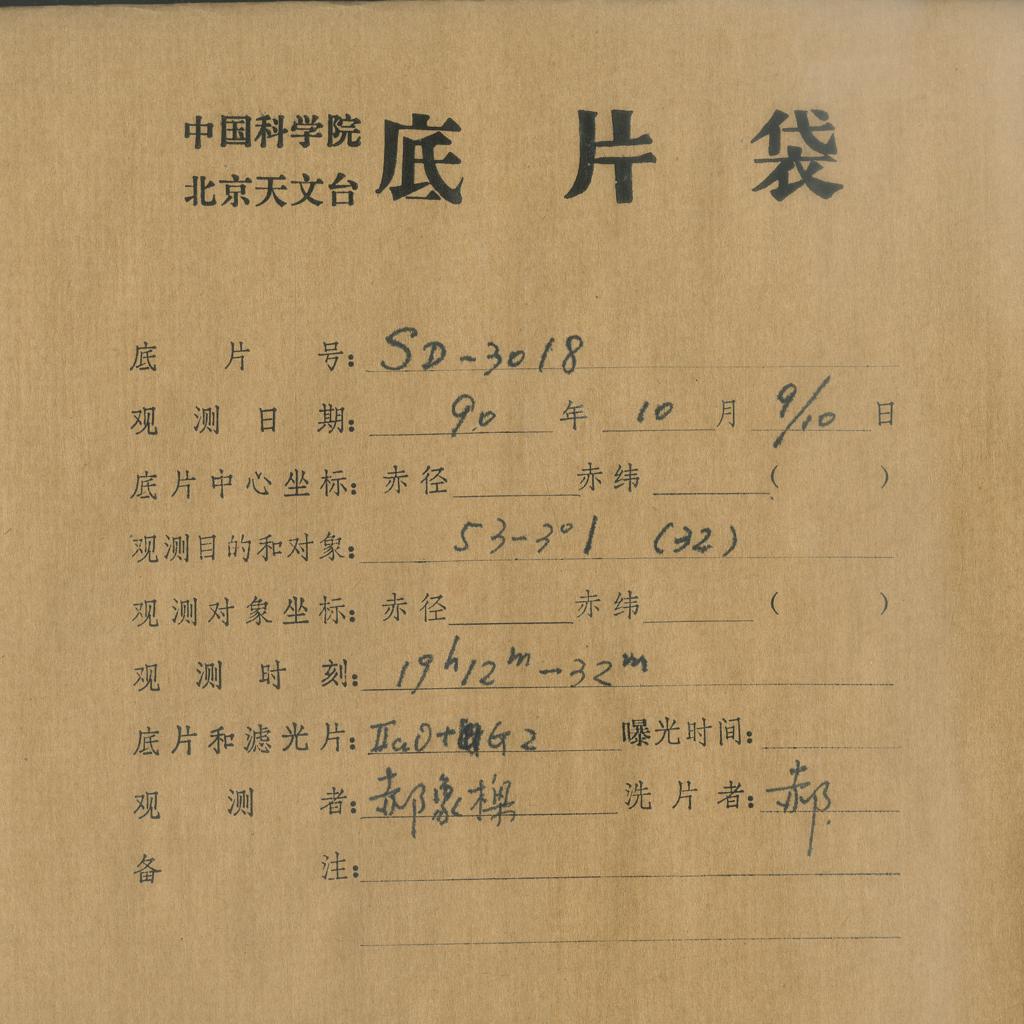 中国科学院
北京天文台 底片袋
底片号: SD-3018
观测日期: 90 年 10 月 9/10 日
底片中心坐标: 赤径 赤纬 ( )
观测目的和对象: 53-3°1 (32)
观测对象坐标: 赤径 赤纬 ( )
观测时刻: 19h12m-32m
底片和滤光片: IIaO+ G2 曝光时间:
观测者: 郝象樑 洗片者: 郝
备注: